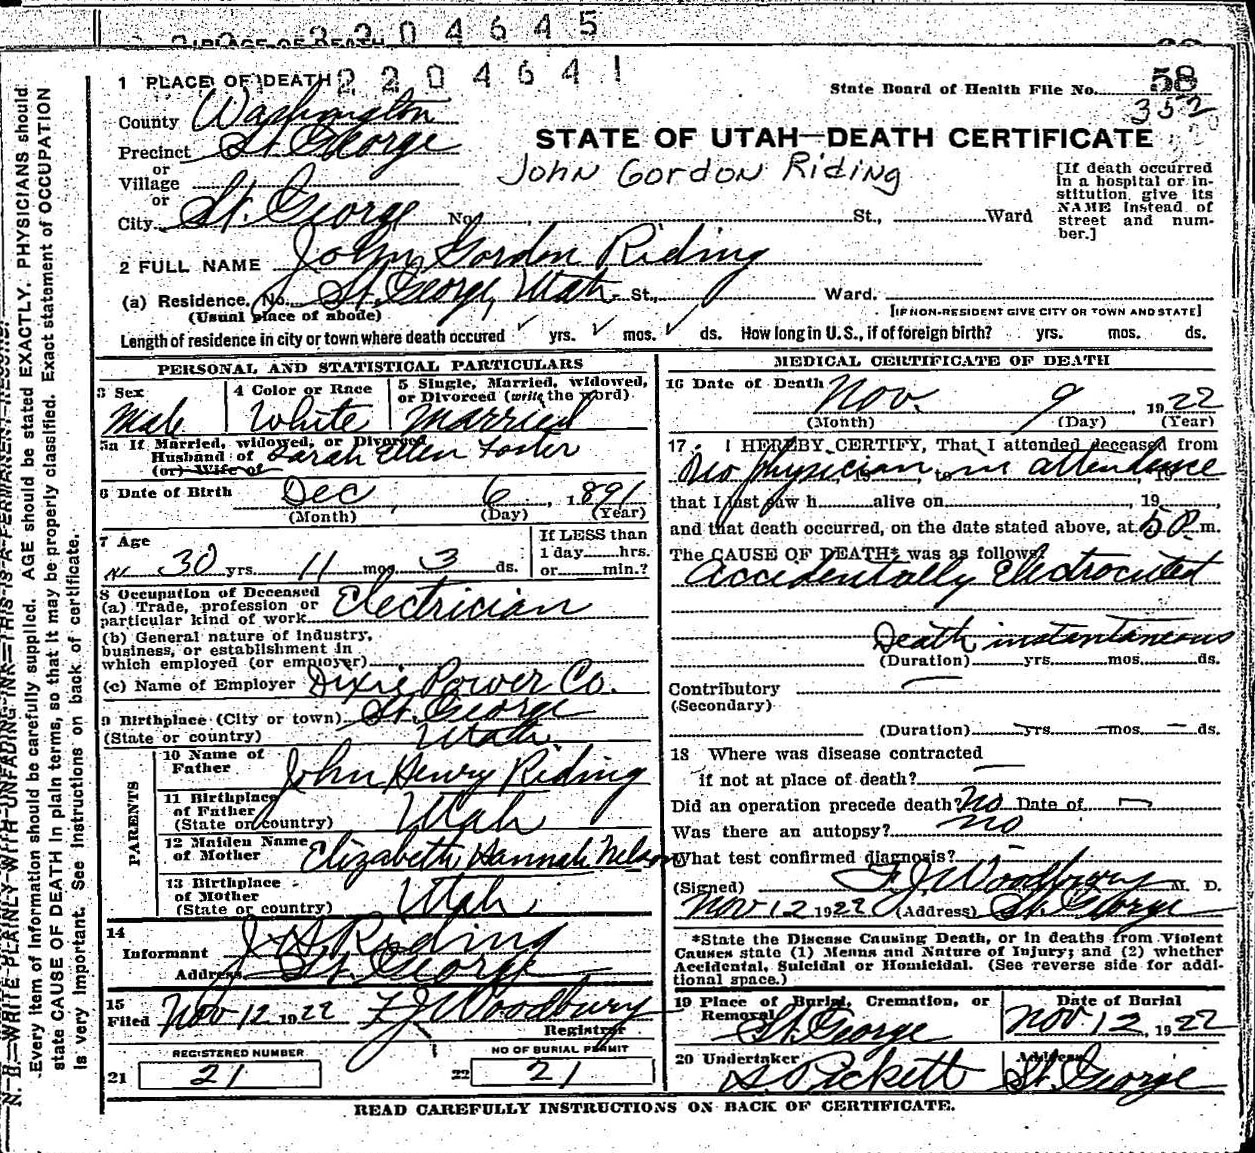 2 2 0 4 6 4 5
PLACE OF DEATH
1 PLACE OF DEATH 2 2 0 4 6 4 1
State Board of Health File No. 58
352
County Washington
Precinct St. George
or
Village
or
City St. George No. St., Ward
STATE OF UTAH—DEATH CERTIFICATE
John Gordon Riding
[If death occurred
in a hospital or in-
stitution, give its
NAME instead of
street and num-
ber.]
2 FULL NAME John Gordon Riding
(a) Residence. No. St. George, Utah. St., Ward.
(Usual place of abode) [IF NON-RESIDENT GIVE CITY OR TOWN AND STATE]
Length of residence in city or town where death occured ✓ yrs. ✓ mos. ✓ ds. How long in U.S., if of foreign birth? yrs. mos. ds.
PERSONAL AND STATISTICAL PARTICULARS
3 Sex
Male
4 Color or Race
White
5 Single, Married, widowed,
or Divorced (write the word)
Married
5a If Married, widowed, or Divorced
Husband of Sarah Ellen Foster
(or) Wife of
6 Date of Birth Dec 6, 1891
(Month) (Day) (Year)
7 Age
30 yrs. 11 mos. 3 ds.
If LESS than
1 day hrs.
or min.?
8 Occupation of Deceased
(a) Trade, profession or
particular kind of work Electrician
(b) General nature of industry,
business, or establishment in
which employed (or employer)
(c) Name of Employer Dixie Power Co.
9 Birthplace (City or town) St. George
(State or country) Utah
PARENTS
10 Name of
Father John Henry Riding
11 Birthplace
of Father
(State or country) Utah
12 Maiden Name
of Mother Elizabeth Hannah Nelson
13 Birthplace
of Mother
(State or country) Utah
14
Informant J. H. Riding
Address St. George
15
Filed Nov 12 1922 F J Woodbury
Registrar
REGISTERED NUMBER
21 21
NO OF BURIAL PERMIT
22 21
MEDICAL CERTIFICATE OF DEATH
16 Date of Death Nov. 9, 1922
(Month) (Day) (Year)
17. I HEREBY CERTIFY, That I attended deceased from
No physician, 19 to in attendence, 19
that I last saw h alive on, 19,
and that death occurred, on the date stated above, at 5 P. m.
The CAUSE OF DEATH* was as follows:
Accidentally Electrocuted
Death instantaneous
(Duration) yrs. mos. ds.
Contributory —
(Secondary)
(Duration) — yrs. — mos. — ds.
18 Where was disease contracted —
if not at place of death?
Did an operation precede death? No Date of —
Was there an autopsy? no
What test confirmed diagnosis? —
(Signed) F. J. Woodbury M. D.
Nov 12 1922 (Address) St. George
*State the Disease Causing Death, or in deaths from Violent
Causes state (1) Means and Nature of Injury; and (2) whether
Accidental, Suicidal or Homicidal. (See reverse side for addi-
tional space.)
19 Place of Burial, Cremation, or
Removal St. George
Date of Burial
Nov 12, 1922
20 Undertaker
S Pickett
Address
St. George
READ CAREFULLY INSTRUCTIONS ON BACK OF CERTIFICATE.
N. B.—WRITE PLAINLY WITH UNFADING INK—THIS IS A PERMANENT RECORD.
Every item of information should be carefully supplied. AGE should be stated EXACTLY. PHYSICIANS should
state CAUSE OF DEATH in plain terms, so that it may be properly classified. Exact statement of OCCUPATION
is very important. See instructions on back of certificate.